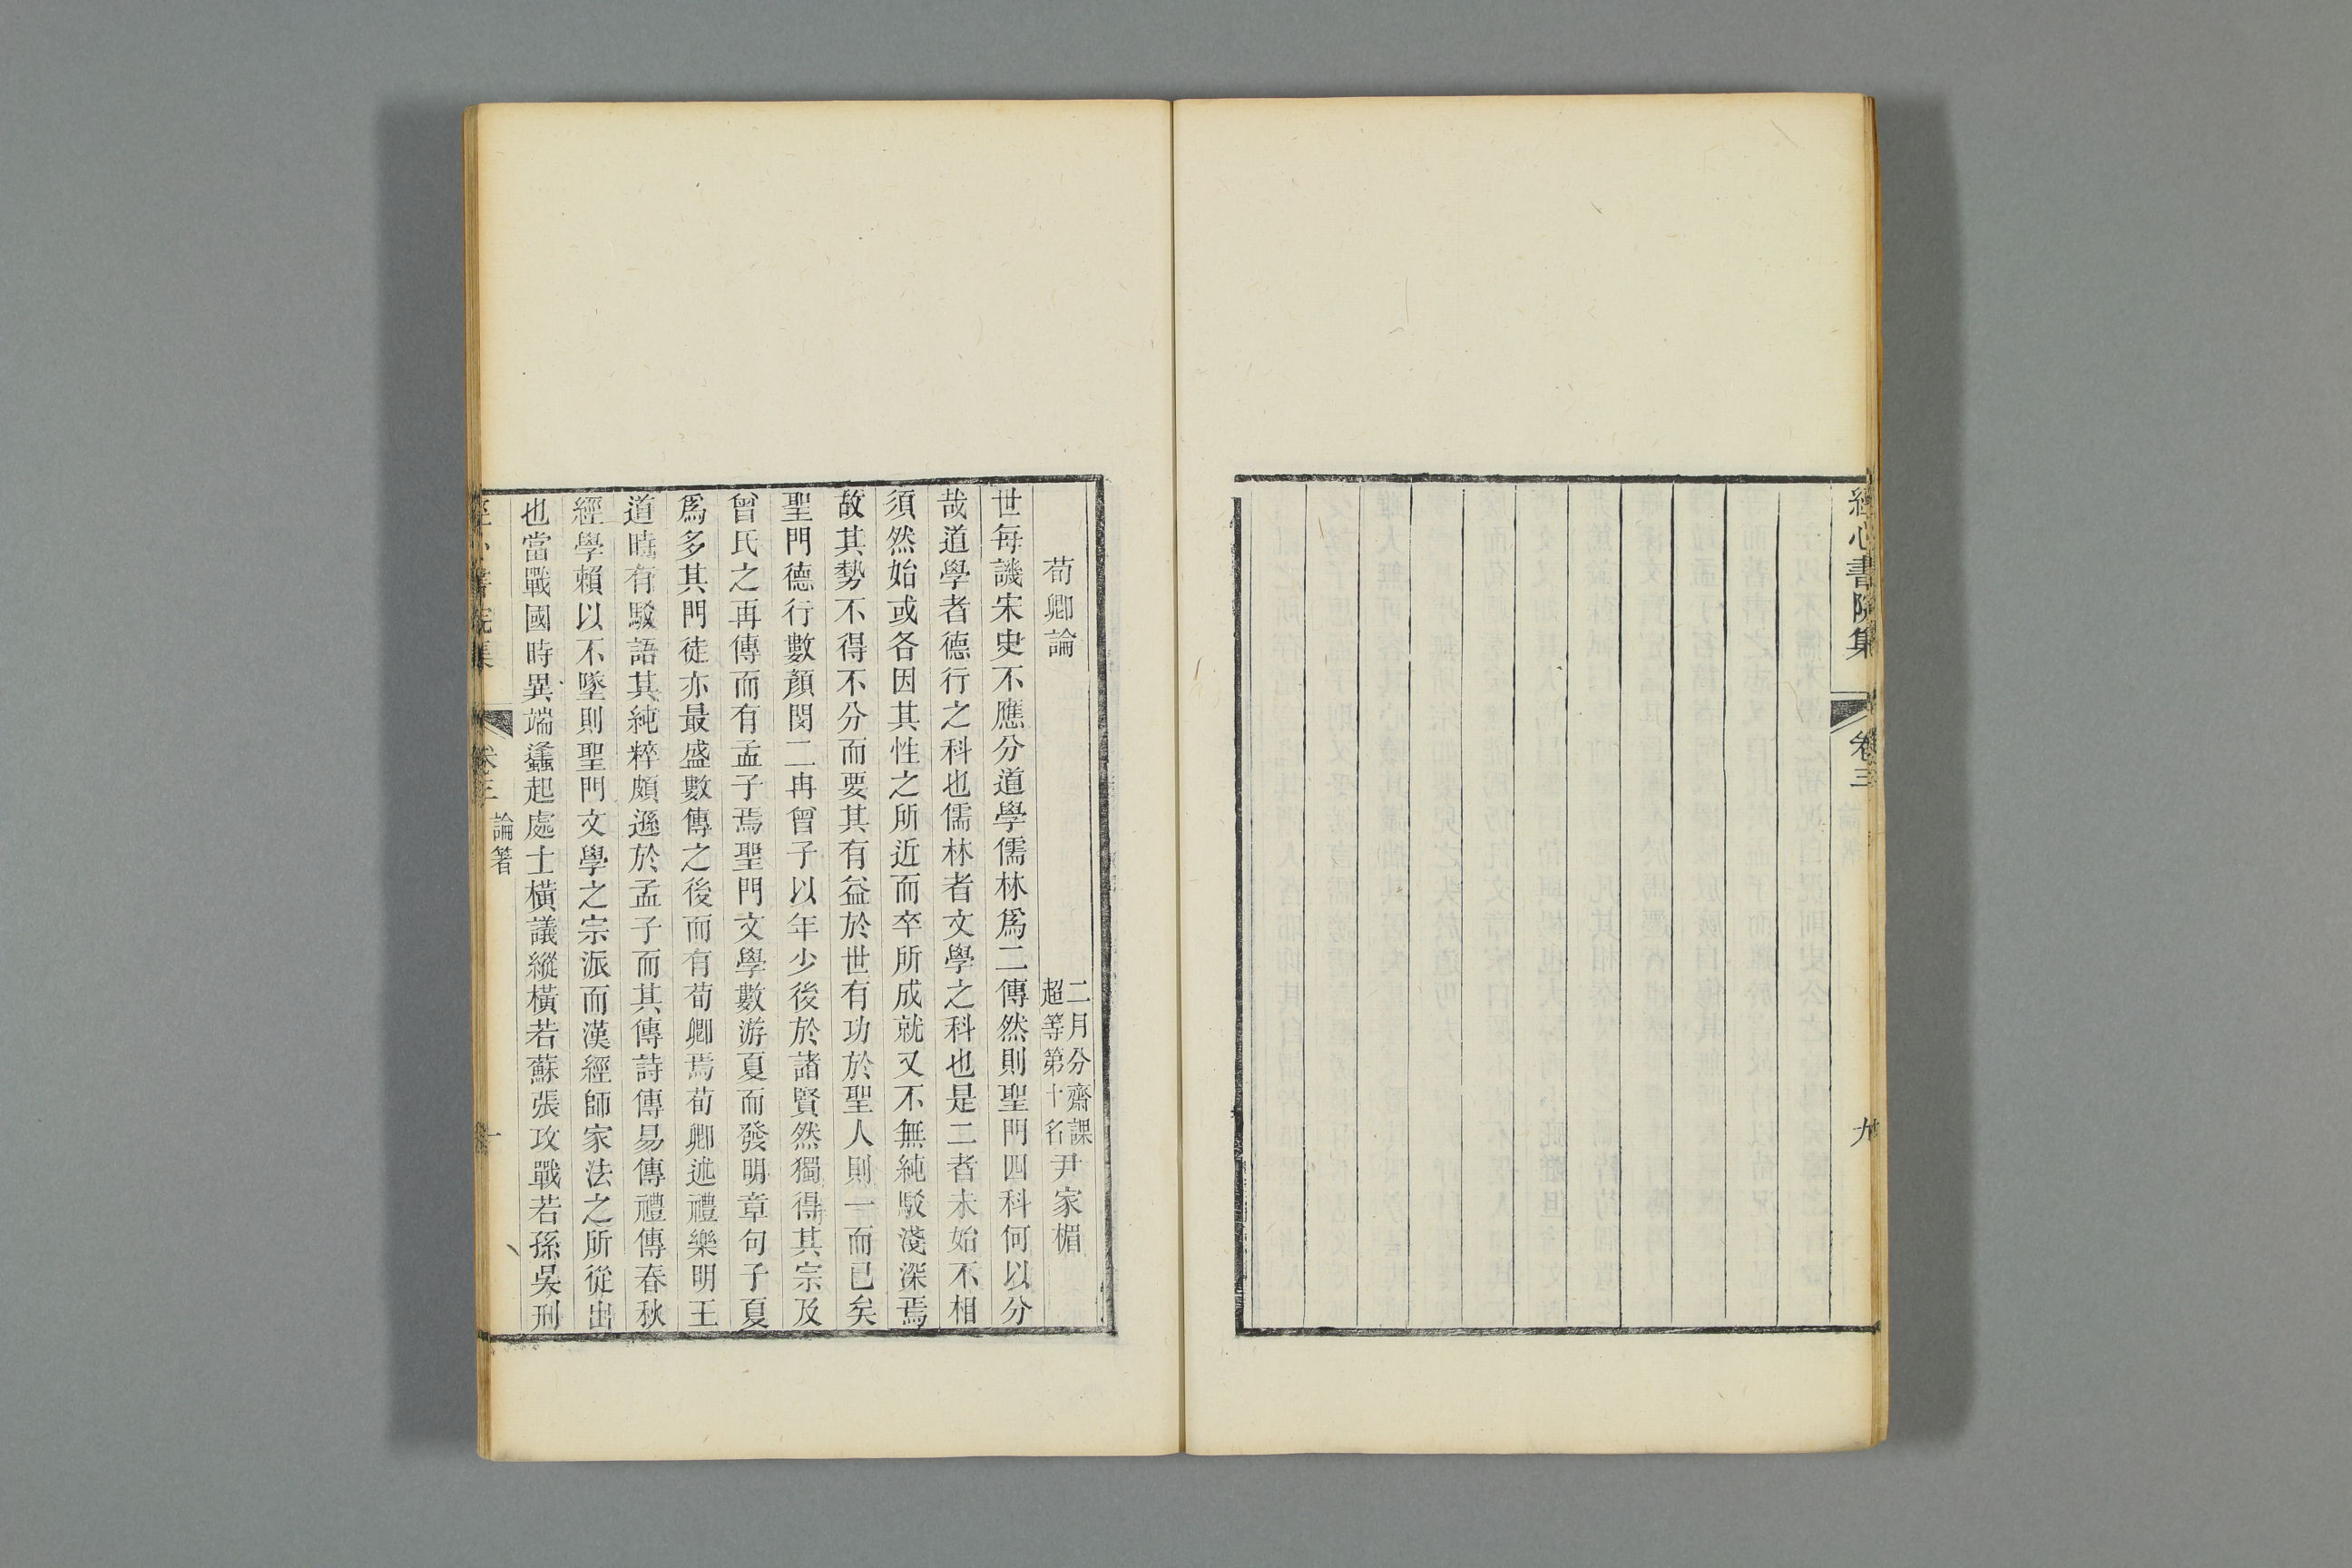 經心書院集
卷三
九
荀卿論
二月分齋課
超等第十名
尹家楣
世每譏宋史不應分道學儒林爲二傳然則聖門四科何以分
哉道學者德行之科也儒林者文學之科也是二者未始不相
須然始或各因其性之所近而卒所成就又不無純駁淺深焉
故其勢不得不分而要其有益於世有功於聖人則一而已矣
聖門德行數顏閔二冉曾子以年少後於諸賢然獨得其宗及
曾氏之再傳而有孟子焉聖門文學數游夏而發明章句子夏
爲多其門徒亦最盛數傳之後而有荀卿焉荀卿述禮樂明王
道時有駁語其純粹頗遜於孟子而其傳詩傳易傳禮傳春秋
經學賴以不墜則聖門文學之宗派而漢經師家法之所從出
也當戰國時異端蠭起處士橫議縱橫若蘇張攻戰若孫吳刑
經心書院集
卷三
論箸